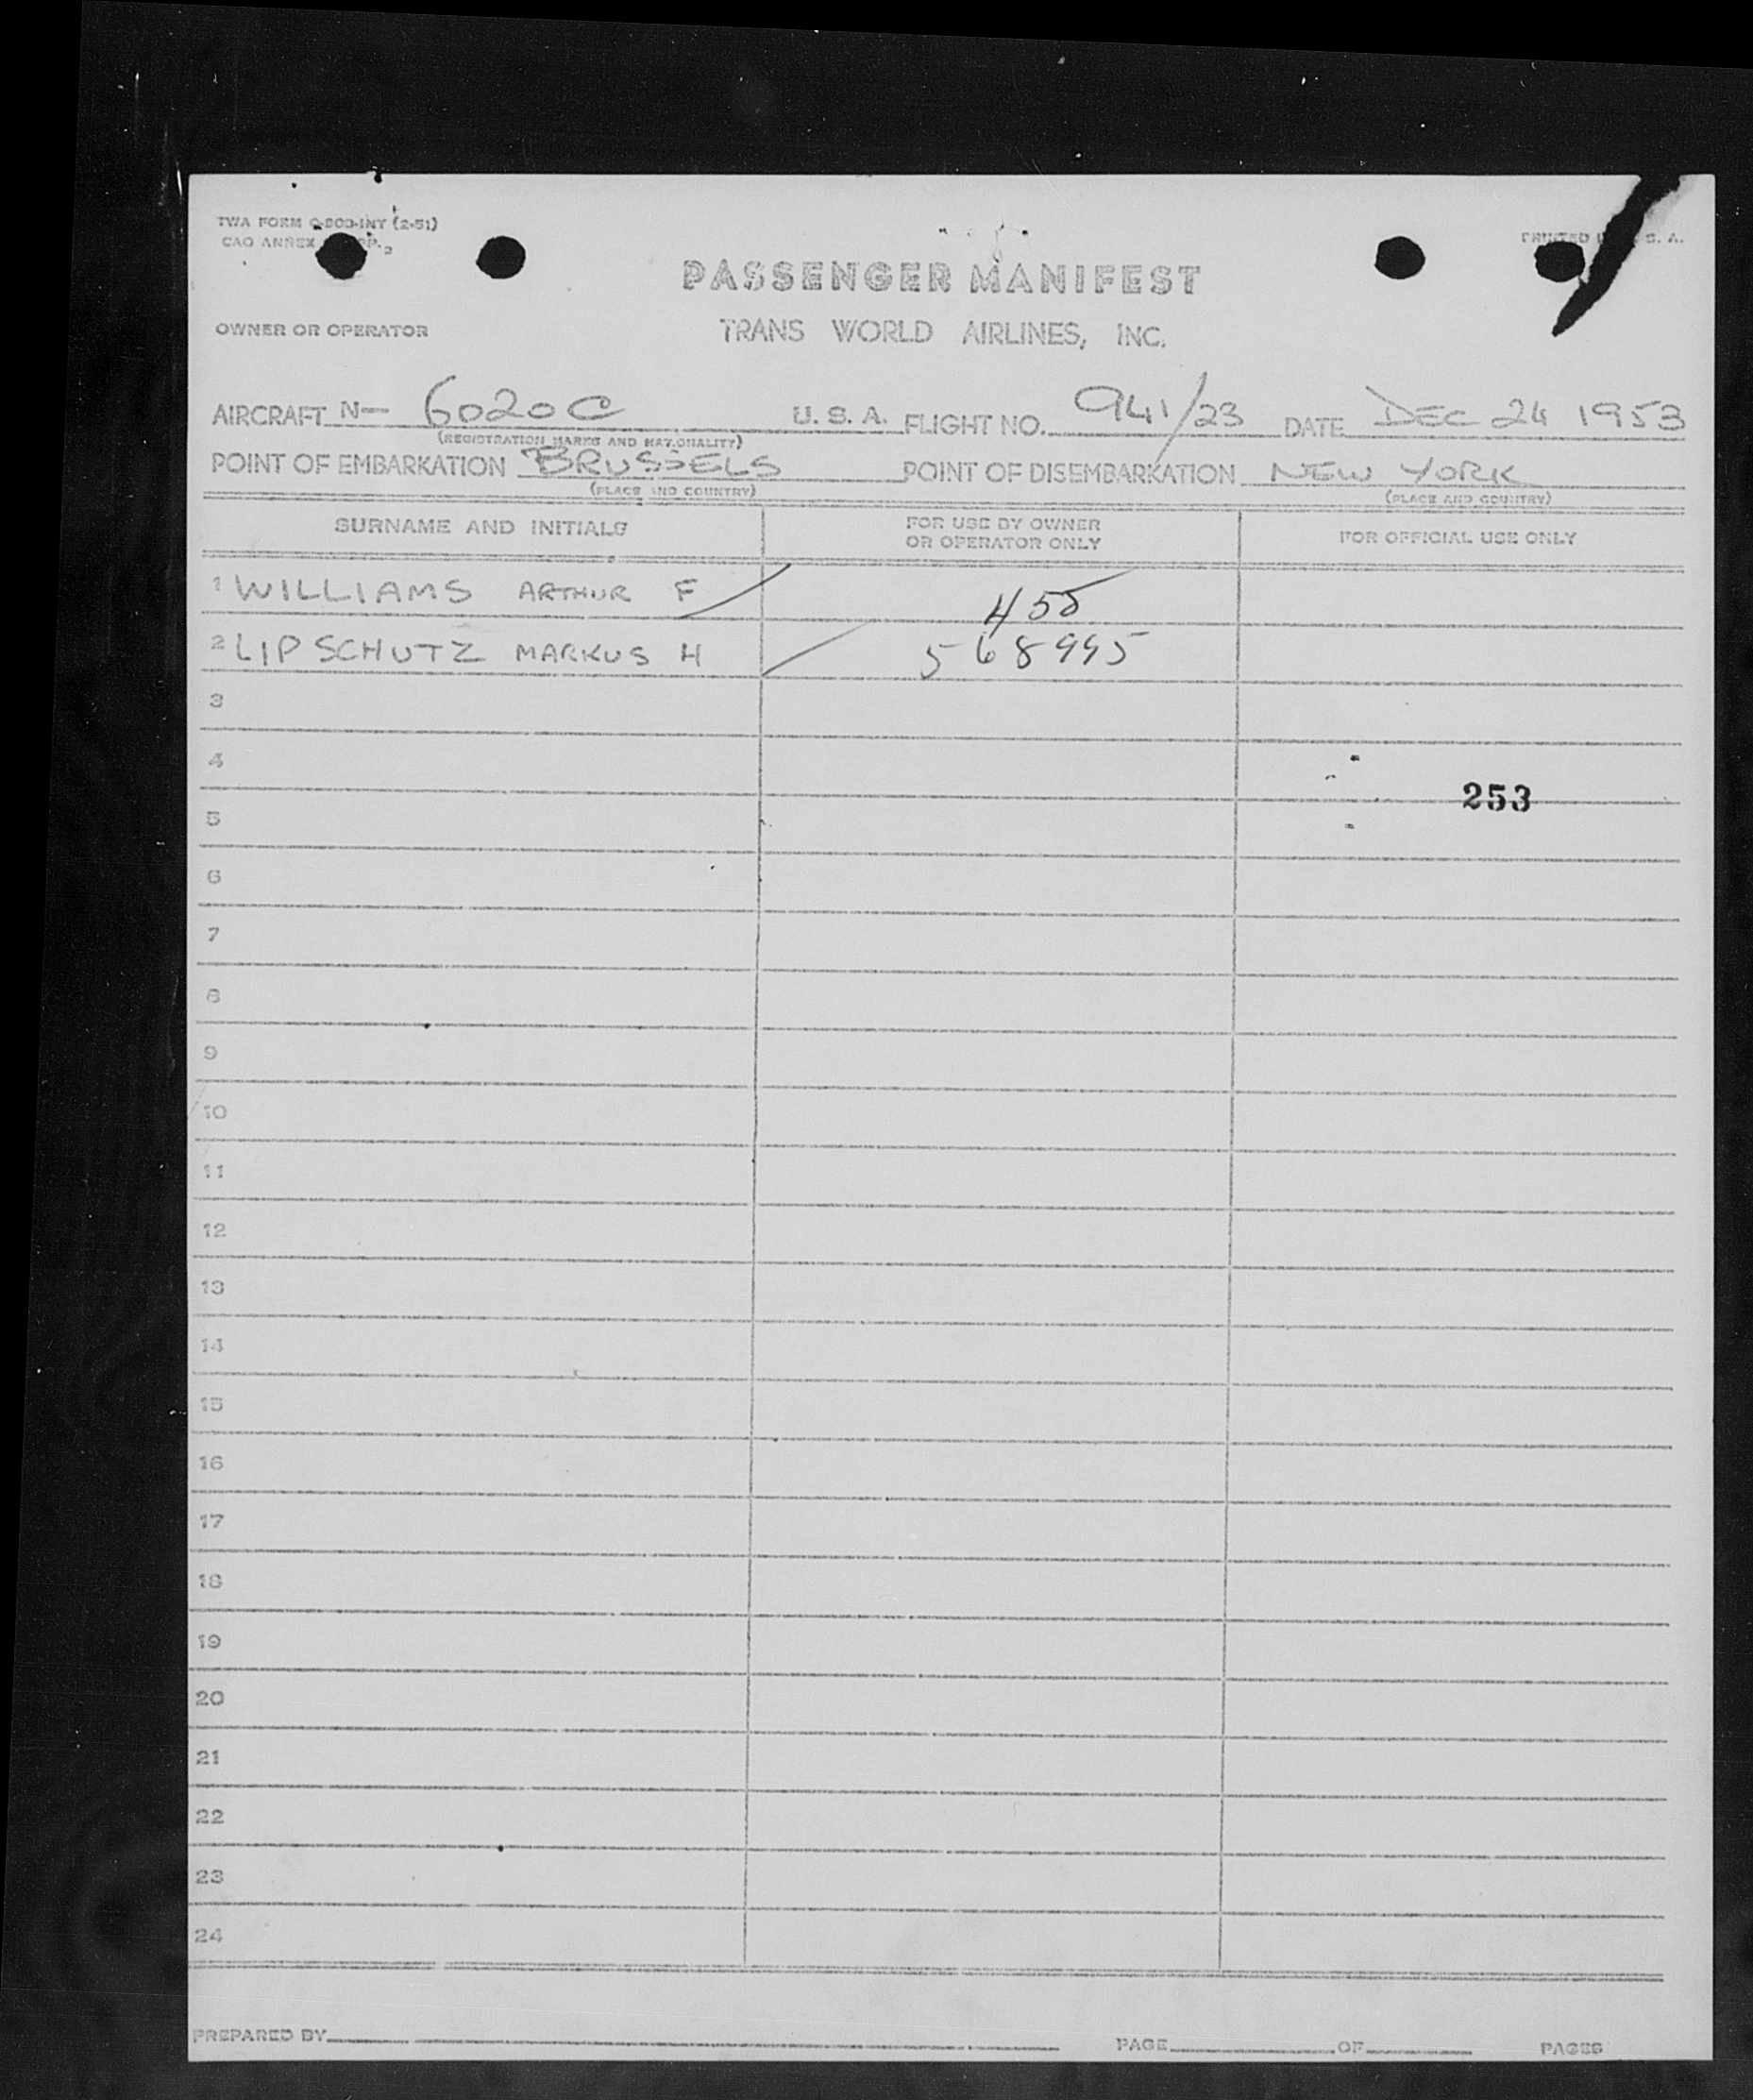 TWA FORM O-800-INT (2-51)
CAO ANNEX
PRINTED S. A.
PASSENGER MANIFEST
OWNER OR OPERATOR TRANS WORLD AIRLINES, INC.
AIRCRAFT N- 6020C U. S. A. FLIGHT NO. 941/23 DATE DEC 24 1953
(REGISTRATION MARKS AND NATIONALITY)
POINT OF EMBARKATION BRUSSELS POINT OF DISEMBARKATION NEW YORK
(PLACE AND COUNTRY) (PLACE AND COUNTRY)
SURNAME AND INITIALS FOR USE BY OWNER OR OPERATOR ONLY FOR OFFICIAL USE ONLY
1 WILLIAMS ARTHUR F 455
2 LIPSCHUTZ MARKUS H 568995
3
4
253
5
6
7
8
9
10
11
12
13
14
15
16
17
18
19
20
21
22
23
24
PREPARED BY PAGE OF PAGES